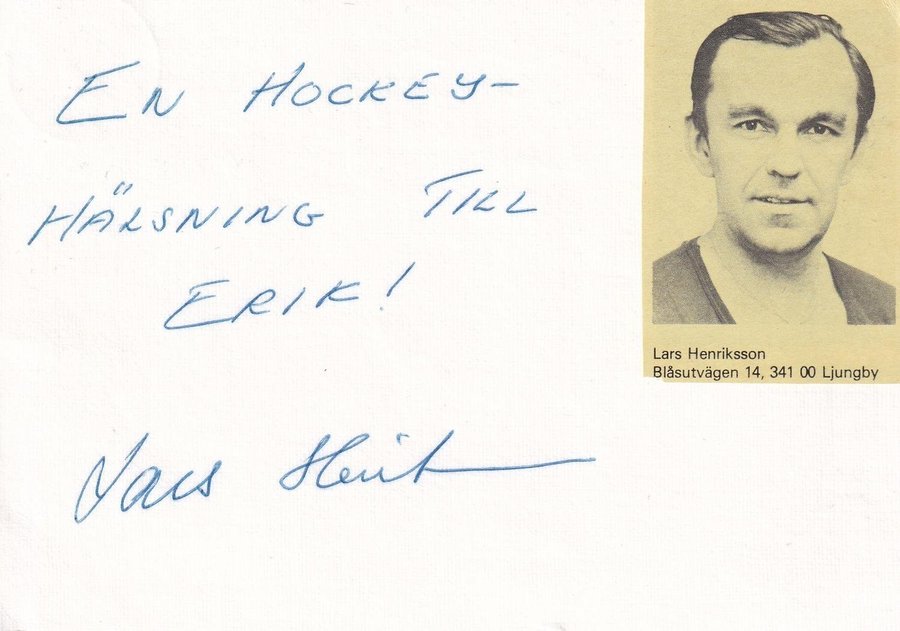 EN HOCKEY-
HÄLSNING TILL
ERIK!
Lars
Lars Henriksson
Blåsutvägen 14, 341 00 Ljungby